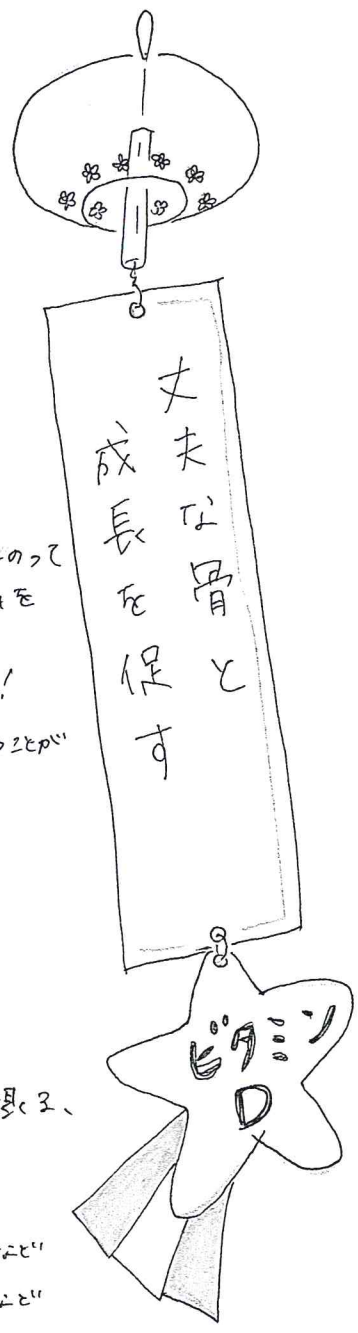 丈夫な骨と
成長を促す
ビタミン
D
のって
を
!
ことが
など
など